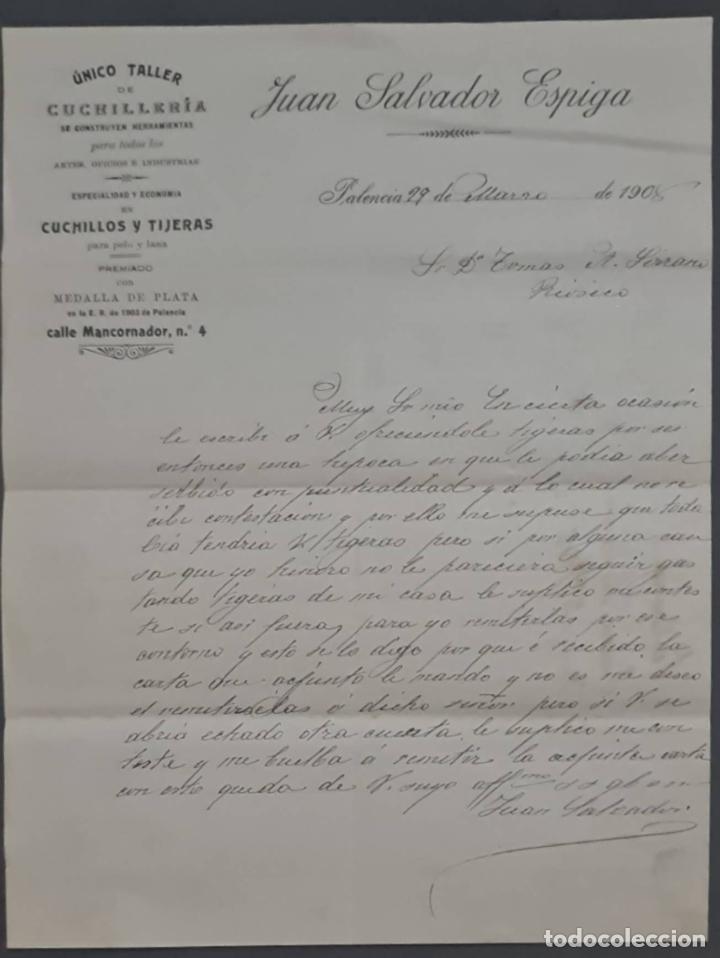 ÚNICO TALLER
DE
CUCHILLERÍA
SE CONSTRUYEN HERRAMIENTAS
para todos los
ARTES, OFICIOS É INDUSTRIAS
ESPECIALIDAD Y ECONOMIA
EN
CUCHILLOS Y TIJERAS
para pelo y lana
PREMIADO
CON
MEDALLA DE PLATA
en la E. R. de 1903 de Palencia
calle Mancornador, n.º 4
Juan Salvador Espiga
Palencia 29 de Marzo de 190
Sr Dn Tomas A. Serrano
Rioseco
Muy Sr mio En cierta ocasión
le escribi á V. ofreciendole tigeras por ser
entonces una hepoca en que le podia aber
serbido con puntualidad y á lo cual no re
cibi contestación y por ello me supuse que toda
bia tendria V. tigeras pero si por alguna cau
sa que yo hinoro no le pareciera seguir gas
tando tigeras de mi casa le suplico me contes
te si asi fuera, para yo remitirlas por ese
contorno y esto se lo digo por que é recibido la
carta que adjunto le mando y no es mi deseo
el remitirselas á dicho señor, pero si V. se
abria echado otra cuenta, le suplico me con
teste y me buelba á remitir la adjunta carta
con esto queda de V. suyo affmo
Juan Salvador
todocoleccion.net